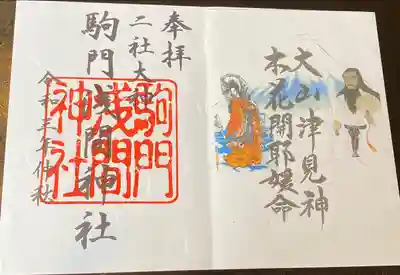 大山津見神
木花開耶媛命
奉拝
二社大神
駒門浅間神社
駒門
浅間
神社
令和三年仲秋